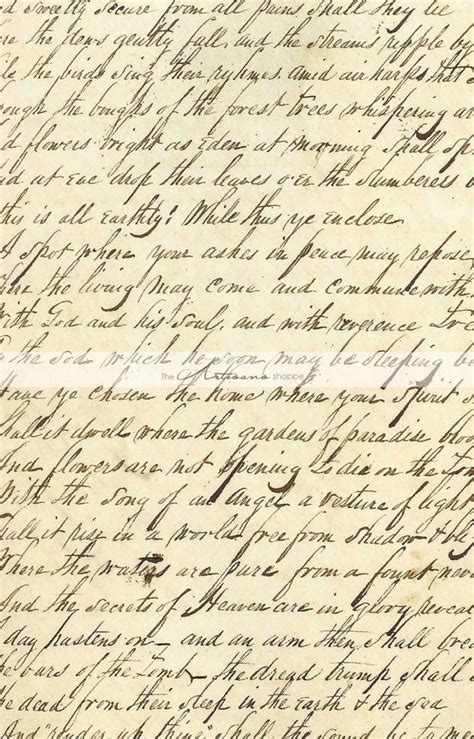 d sweetly secure from all pains shall they lie
re the dews gently fall, and the streams ripple by
le the birds sing their rhymes amid air harps that
rough the boughs of the forest trees whispering ar
d flowers bright as Eden at morning shall sp
nd at Eve drop their leaves o'er the slumberers
this is all Earthly! While thus ye enclose
A spot where your ashes in peace may repose
ere the living may come and commune with
With God and his Soul, and with reverence
the sod which he soon may be sleeping be
The Artisans shoppe
Have ye chosen the home where your Spirit s
Shall it dwell where the gardens of paradise bloo
And flowers are not opening to die on the Tom
With the song of an Angel a vesture of light
Shall it rise in a world free from shadow &
Where the waters are pure from a fount neve
And the secrets of Heaven are in glory revea
A day hastens on — and an arm then shall brea
he bars of the Tomb — the dread trump shall
he dead from their sleep in the Earth & the Sea
And "render up thine" shall the sound be to